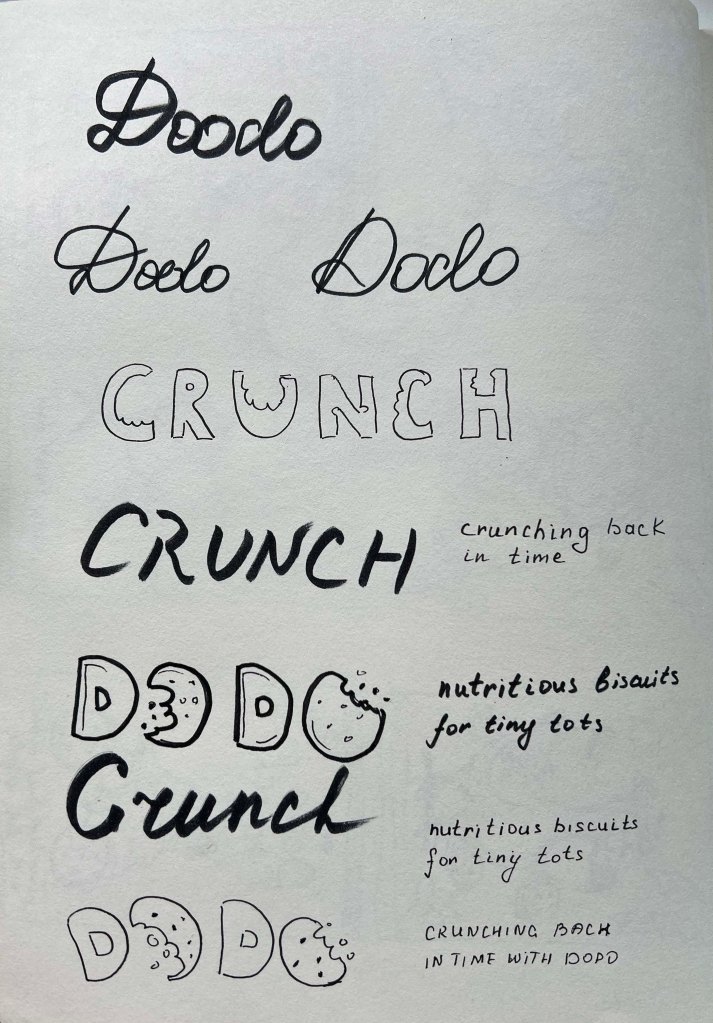 Doodo
Dodo Dodo
CRUNCH
CRUNCH
crunching back
in time
DODO
nutritious biscuits
for tiny tots
Crunch
nutritious biscuits
for tiny tots
DODO
CRUNCHING BACK
IN TIME WITH DODO